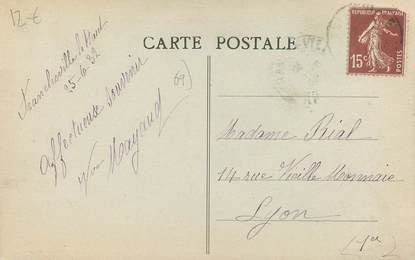 12-€
CARTE POSTALE
Francheville le Haut
25-6-32
(69)
affectueux souvenir
Mayaud
REPUBLIQUE FRANCAISE
15c
POSTES
Madame Rial
14 rue Vieille Monnaie
Lyon
(1er)